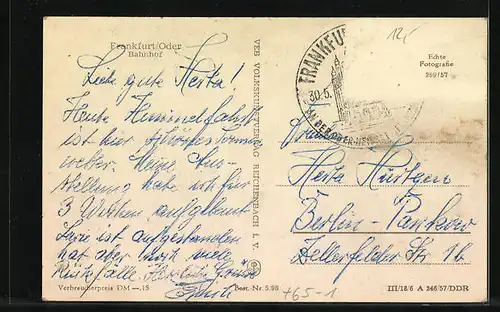 Frankfurt/Oder
Bahnhof
Liebe gute Herta!
Heute Himmelfahrt
ist hier schönstes Sommer-
wetter. Meine Aus-
stellung hat ich für
3 Wochen aufgebaut
ist aufgestanden
hat aber noch viele
Rückfälle. Herzliche Grüsse
Verbraucherpreis DM —.15
Best. Nr. 5/98
VEB VOLKSKUNSTVERLAG REICHENBACH I. V.
FRANKFU
30.5.
12,-
Echte
Fotografie
259/57
Frau
Herta Hürtgen
Berlin-Pankow
Zellerfelder Str 16
+65-1
III/18/6 A 246/57/DDR